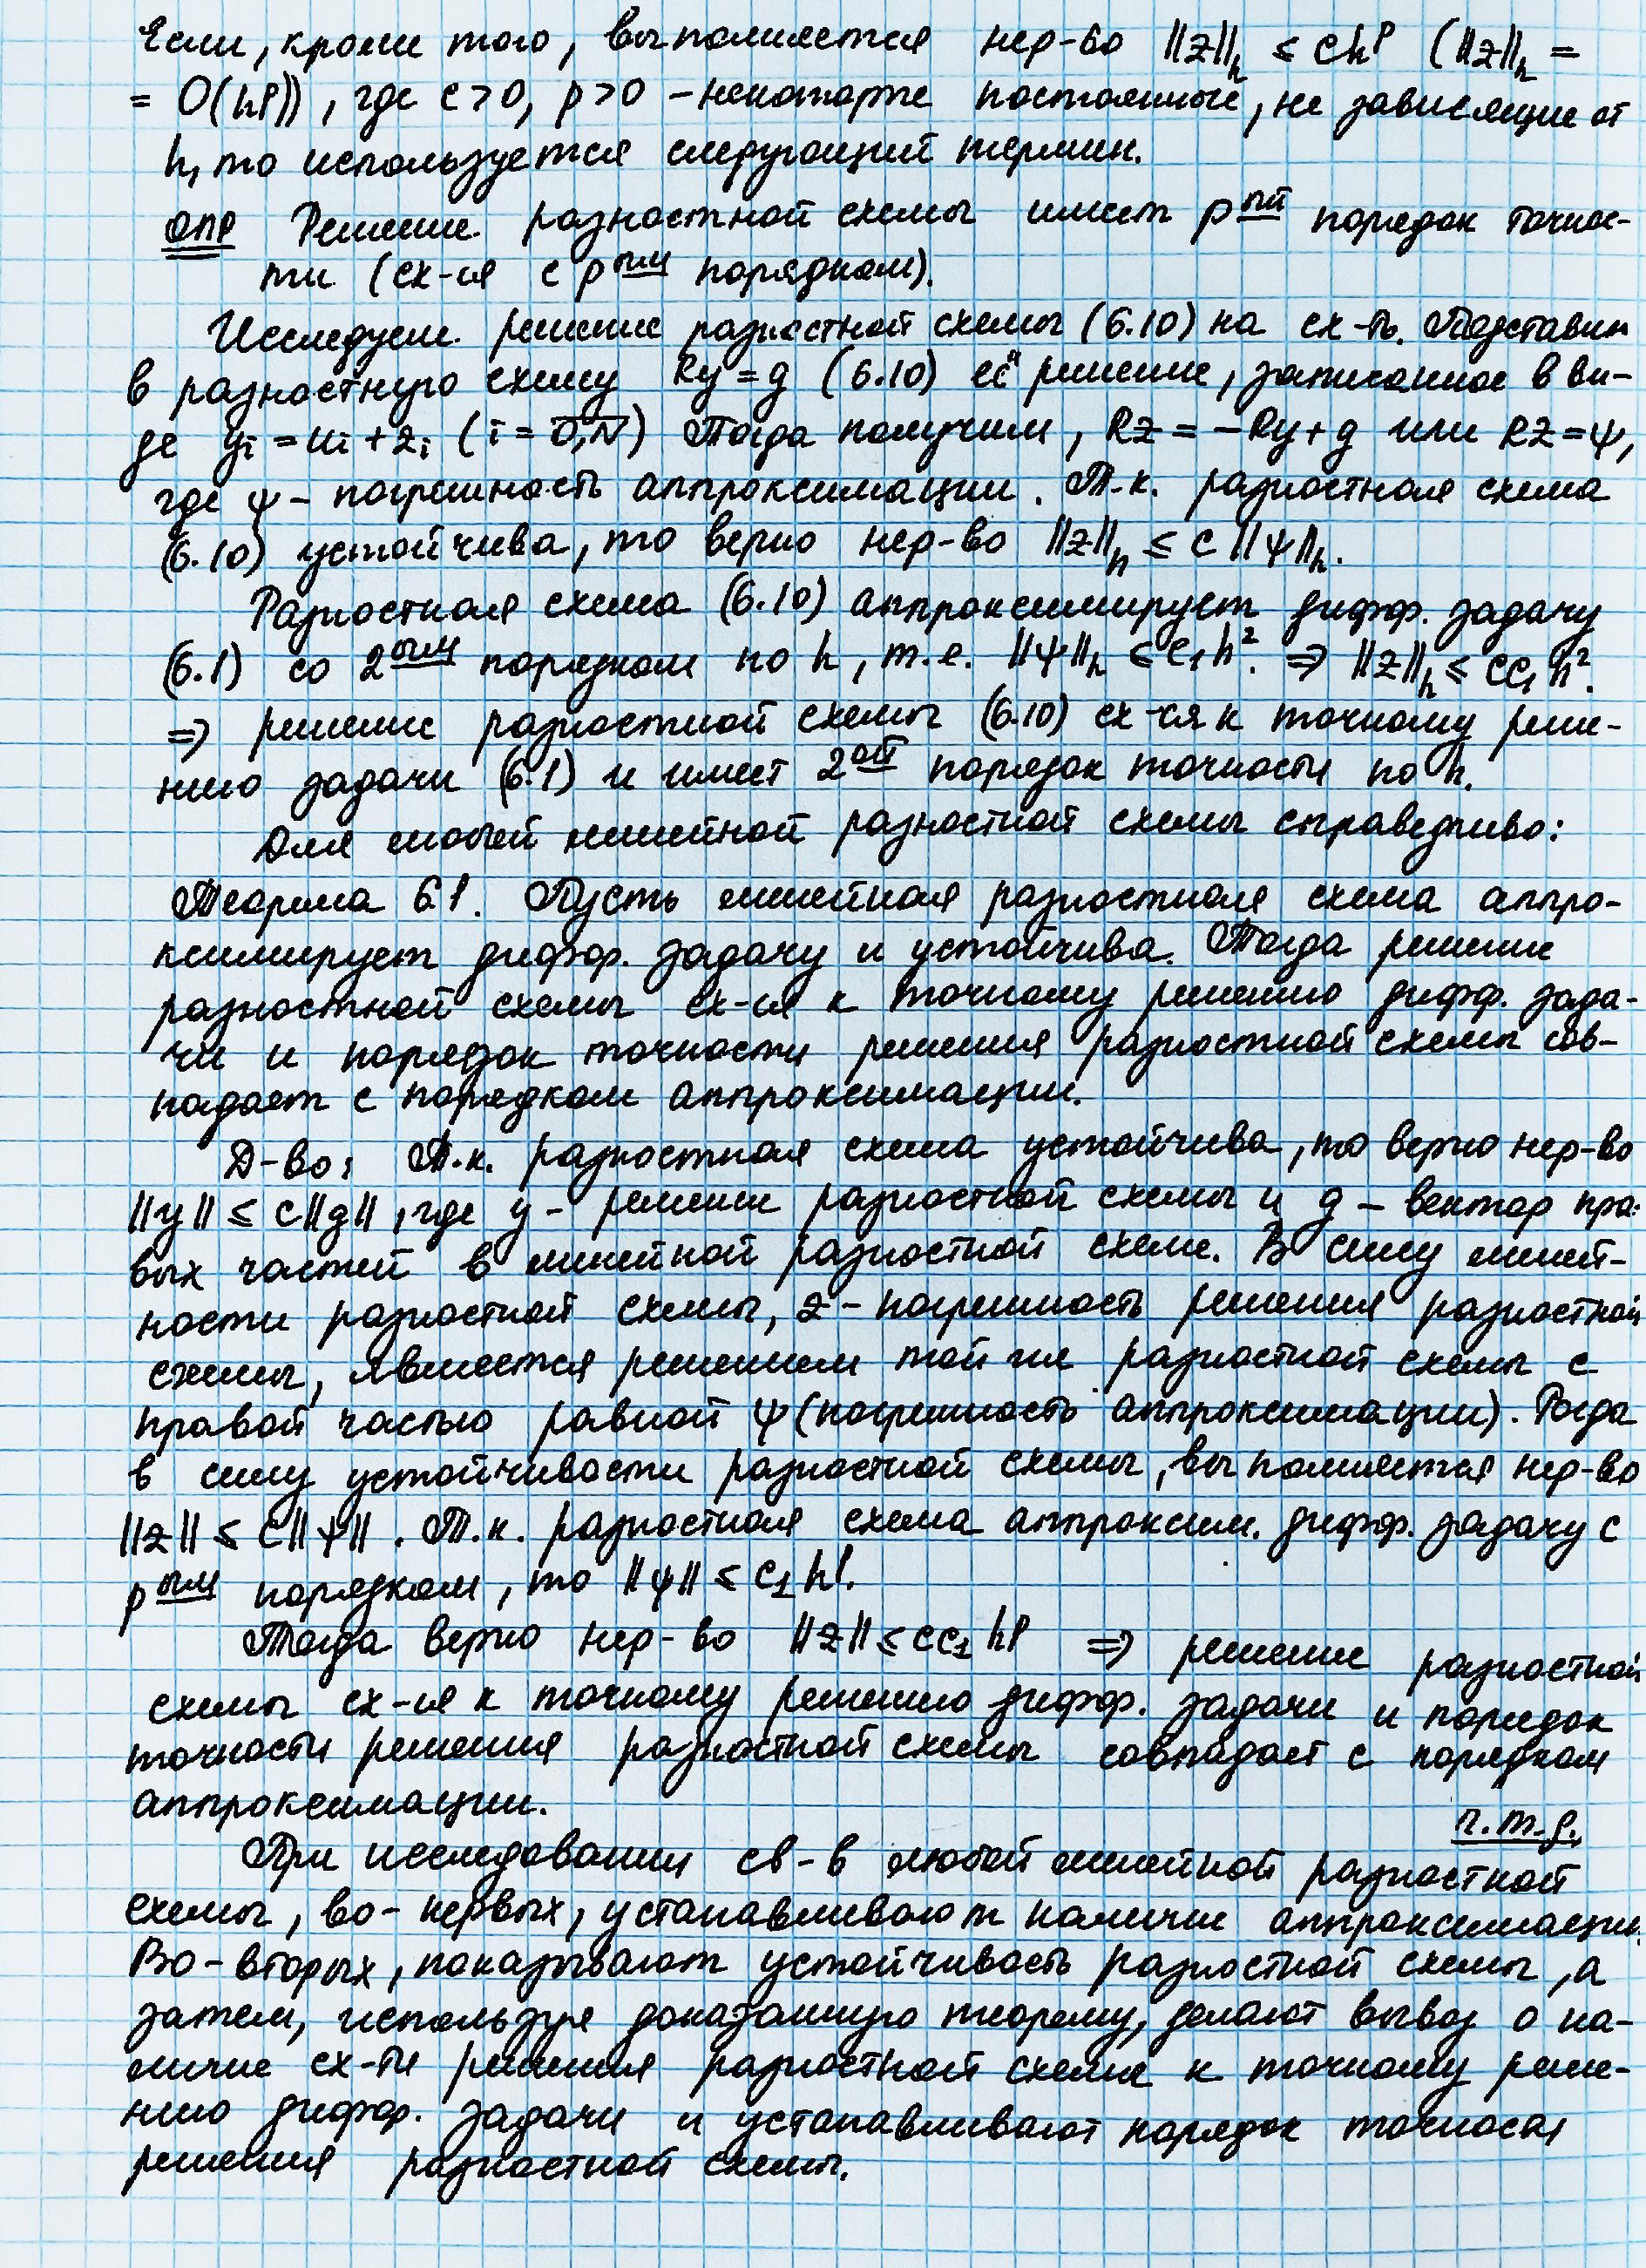 Если, кроме того, выполняется нер-во ||z||ₕ ≤ chᵖ (||z||ₕ =
= O(hᵖ)), где c>0, p>0 – некоторые постоянные, не зависящие от
h, то используется следующий термин.
ОПР Решение разностной схемы имеет pый порядок точнос-
ти (сх-ся с pым порядком).
Исследуем решение разностной схемы (6.10) на сх-ть. Подставим
в разностную схему Ry=g (6.10) её решение, записанное в ви-
де yᵢ = uᵢ + zᵢ (i = 0,N) Тогда получим, Rz = –Ry+g или Rz=ψ,
где ψ – погрешность аппроксимации. Т.к. разностная схема
(6.10) устойчива, то верно нер-во ||z||ₕ ≤ c ||ψ||ₕ.
Разностная схема (6.10) аппроксимирует дифф. задачу
(6.1) со 2ым порядком по h, т.е. ||ψ||ₕ ≤ c₁h². ⇒ ||z||ₕ ≤ cc₁h².
⇒ решение разностной схемы (6.10) сх-ся к точному реше-
нию задачи (6.1) и имеет 2ой порядок точности по h.
Для любой линейной разностной схемы справедливо:
Теорема 6.1. Пусть линейная разностная схема аппро-
ксимирует дифф. задачу и устойчива. Тогда решение
разностной схемы сх-ся к точному решению дифф. зада-
чи и порядок точности решения разностной схемы сов-
падает с порядком аппроксимации.
Д-во: Т.к. разностная схема устойчива, то верно нер-во
||y|| ≤ c||g||, где y – решение разностной схемы и g – вектор пра-
вых частей в линейной разностной схеме. В силу линей-
ности разностной схемы, z – погрешность решения разностной
схемы, является решением той же разностной схемы с
правой частью равной ψ (погрешность аппроксимации). Тогда
в силу устойчивости разностной схемы, выполняется нер-во
||z|| ≤ c||ψ||. Т.к. разностная схема аппроксим. дифф. задачу с
pым порядком, то ||ψ|| ≤ c₁hᵖ.
Тогда верно нер-во ||z|| ≤ cc₁hᵖ ⇒ решение разностной
схемы сх-ся к точному решению дифф. задачи и порядок
точности решения разностной схемы совпадает с порядком
аппроксимации.
ч.т.д.
При исследовании св-в любой линейной разностной
схемы, во-первых, устанавливают наличие аппроксимации.
Во-вторых, показывают устойчивость разностной схемы, а
затем, используя доказанную теорему, делают вывод о на-
личие сх-ти решения разностной схемы к точному реше-
нию дифф. задачи и устанавливают порядок точности
решения разностной схемы.